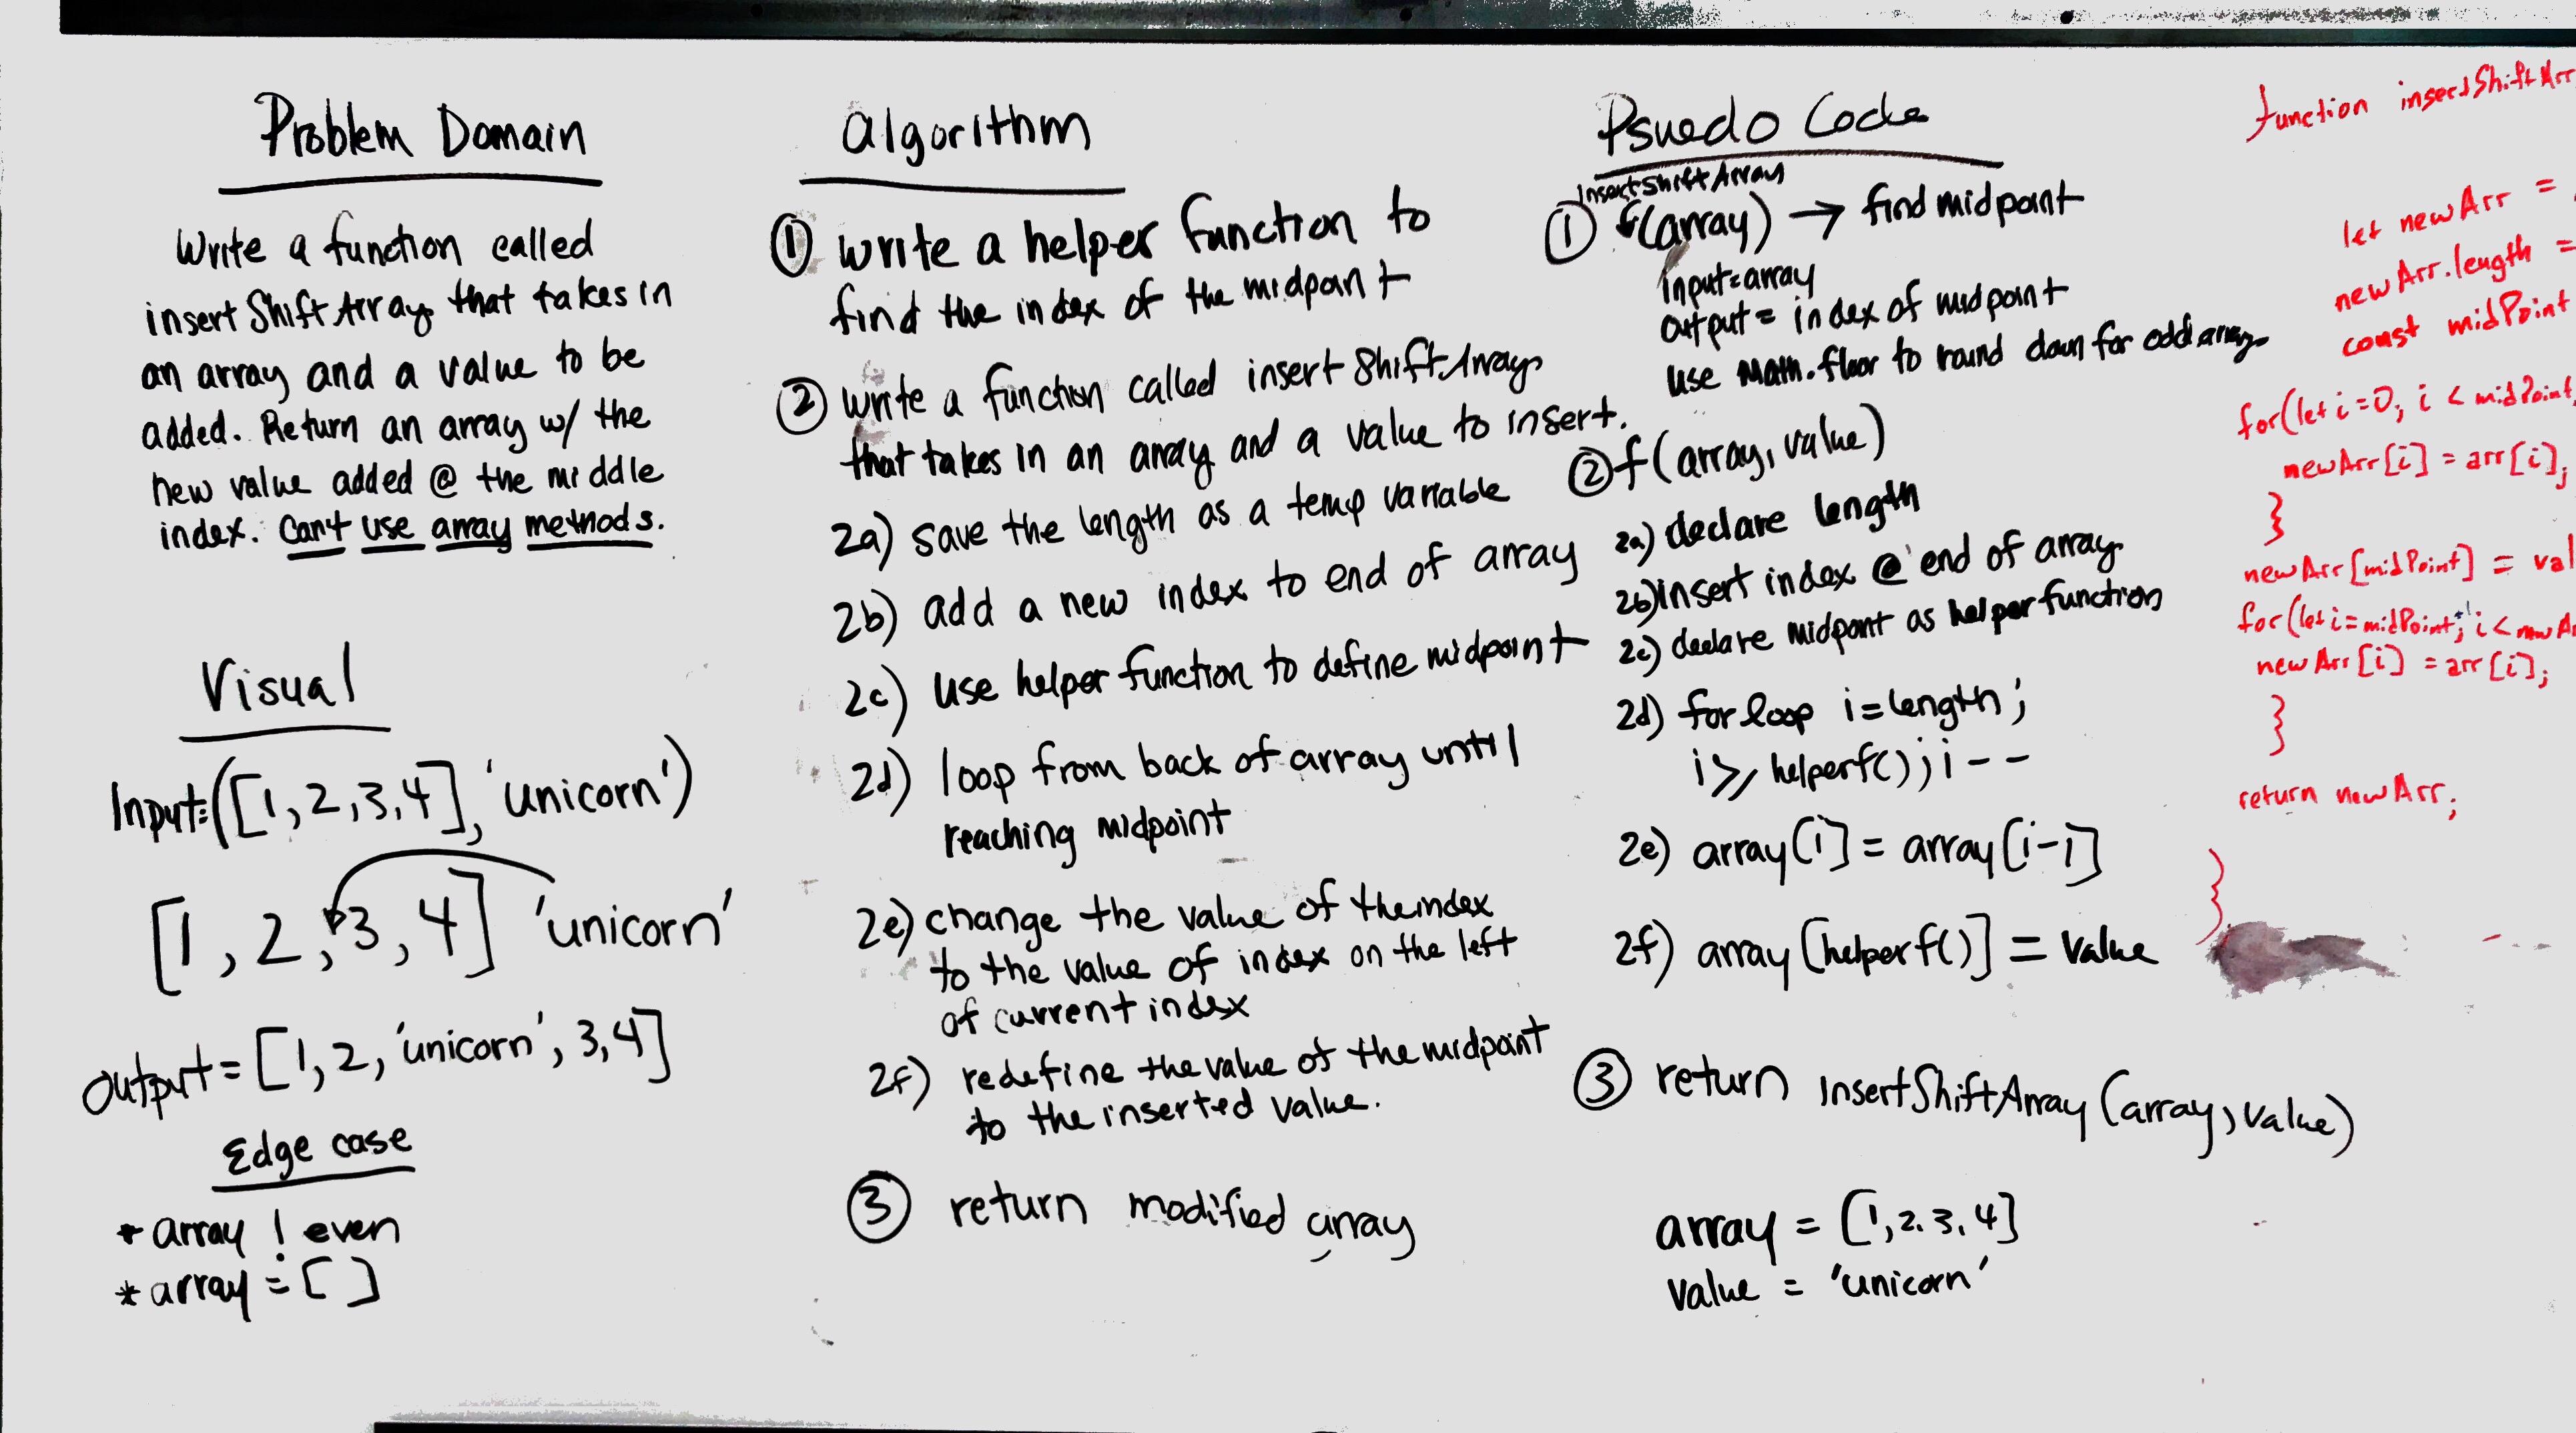 Problem Domain
Write a function called
insertShiftArray that takes in
an array and a value to be
added. Return an array w/ the
new value added @ the middle
index. Can't use array methods.
Visual
Input=([1,2,3,4], 'unicorn')
[1, 2, 3, 4] 'unicorn'
output = [1, 2, 'unicorn', 3, 4]
Edge case
* array ! even
* array = [ ]
algorithm
① write a helper function to
find the index of the midpoint
② write a function called insertShiftArray
that takes in an array and a value to insert.
2a) save the length as a temp variable
2b) add a new index to end of array
2c) use helper function to define midpoint
2d) loop from back of array until
reaching midpoint
2e) change the value of the index
to the value of index on the left
of current index
2f) redefine the value of the midpoint
to the inserted value.
③ return modified array
Psuedo Code
InsertShiftArray
① f(array) → find midpoint
input=array
output = index of midpoint
use Math.floor to round down for odd array.
② f(array, value)
2a) declare length
2b) insert index @ end of array
2c) declare midpoint as helper function
2d) for loop i=length;
i>, helperf(); i--
2e) array[i] = array[i-1]
2f) array[helperf()] = value
③ return InsertShiftArray(array, value)
array = [1, 2. 3, 4]
value = 'unicorn'
function insertShiftArr
let newArr =
newArr.length =
const midPoint
for(let i=0; i < midPoint;
newArr[i] = arr[i];
}
newArr[midPoint] = val
for(let i=midPoint+1; i < newAr
newArr[i] = arr[i];
}
return newArr;
}